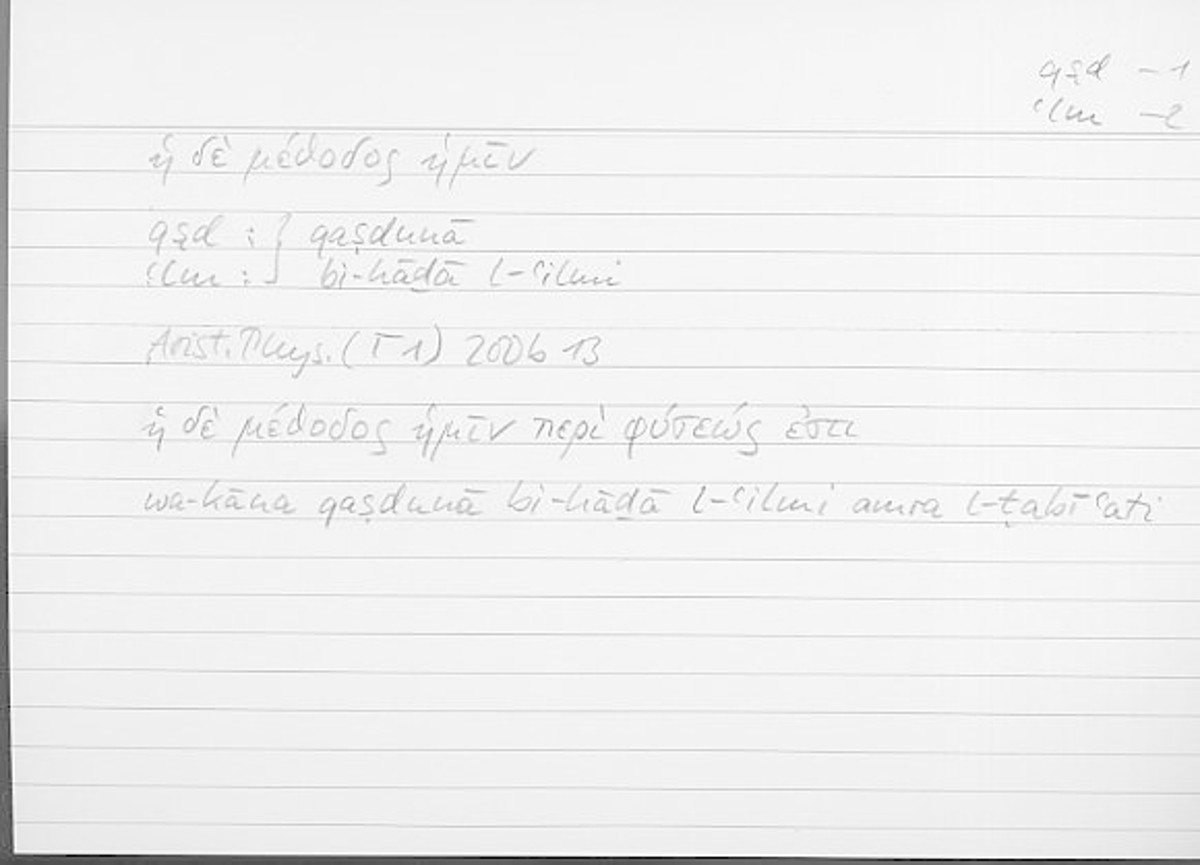 qṣd – 1
ʿlm – 2
ἡ δὲ μέθοδος ἡμῖν
qṣd : } qaṣdunā
ʿlm : } bi-hāḏā l-ʿilmi
Arist. Phys. (Γ 1) 200b 13
ἡ δὲ μέθοδος ἡμῖν περὶ φύσεώς ἐστι
wa-kāna qaṣdunā bi-hāḏā l-ʿilmi amra l-ṭabīʿati